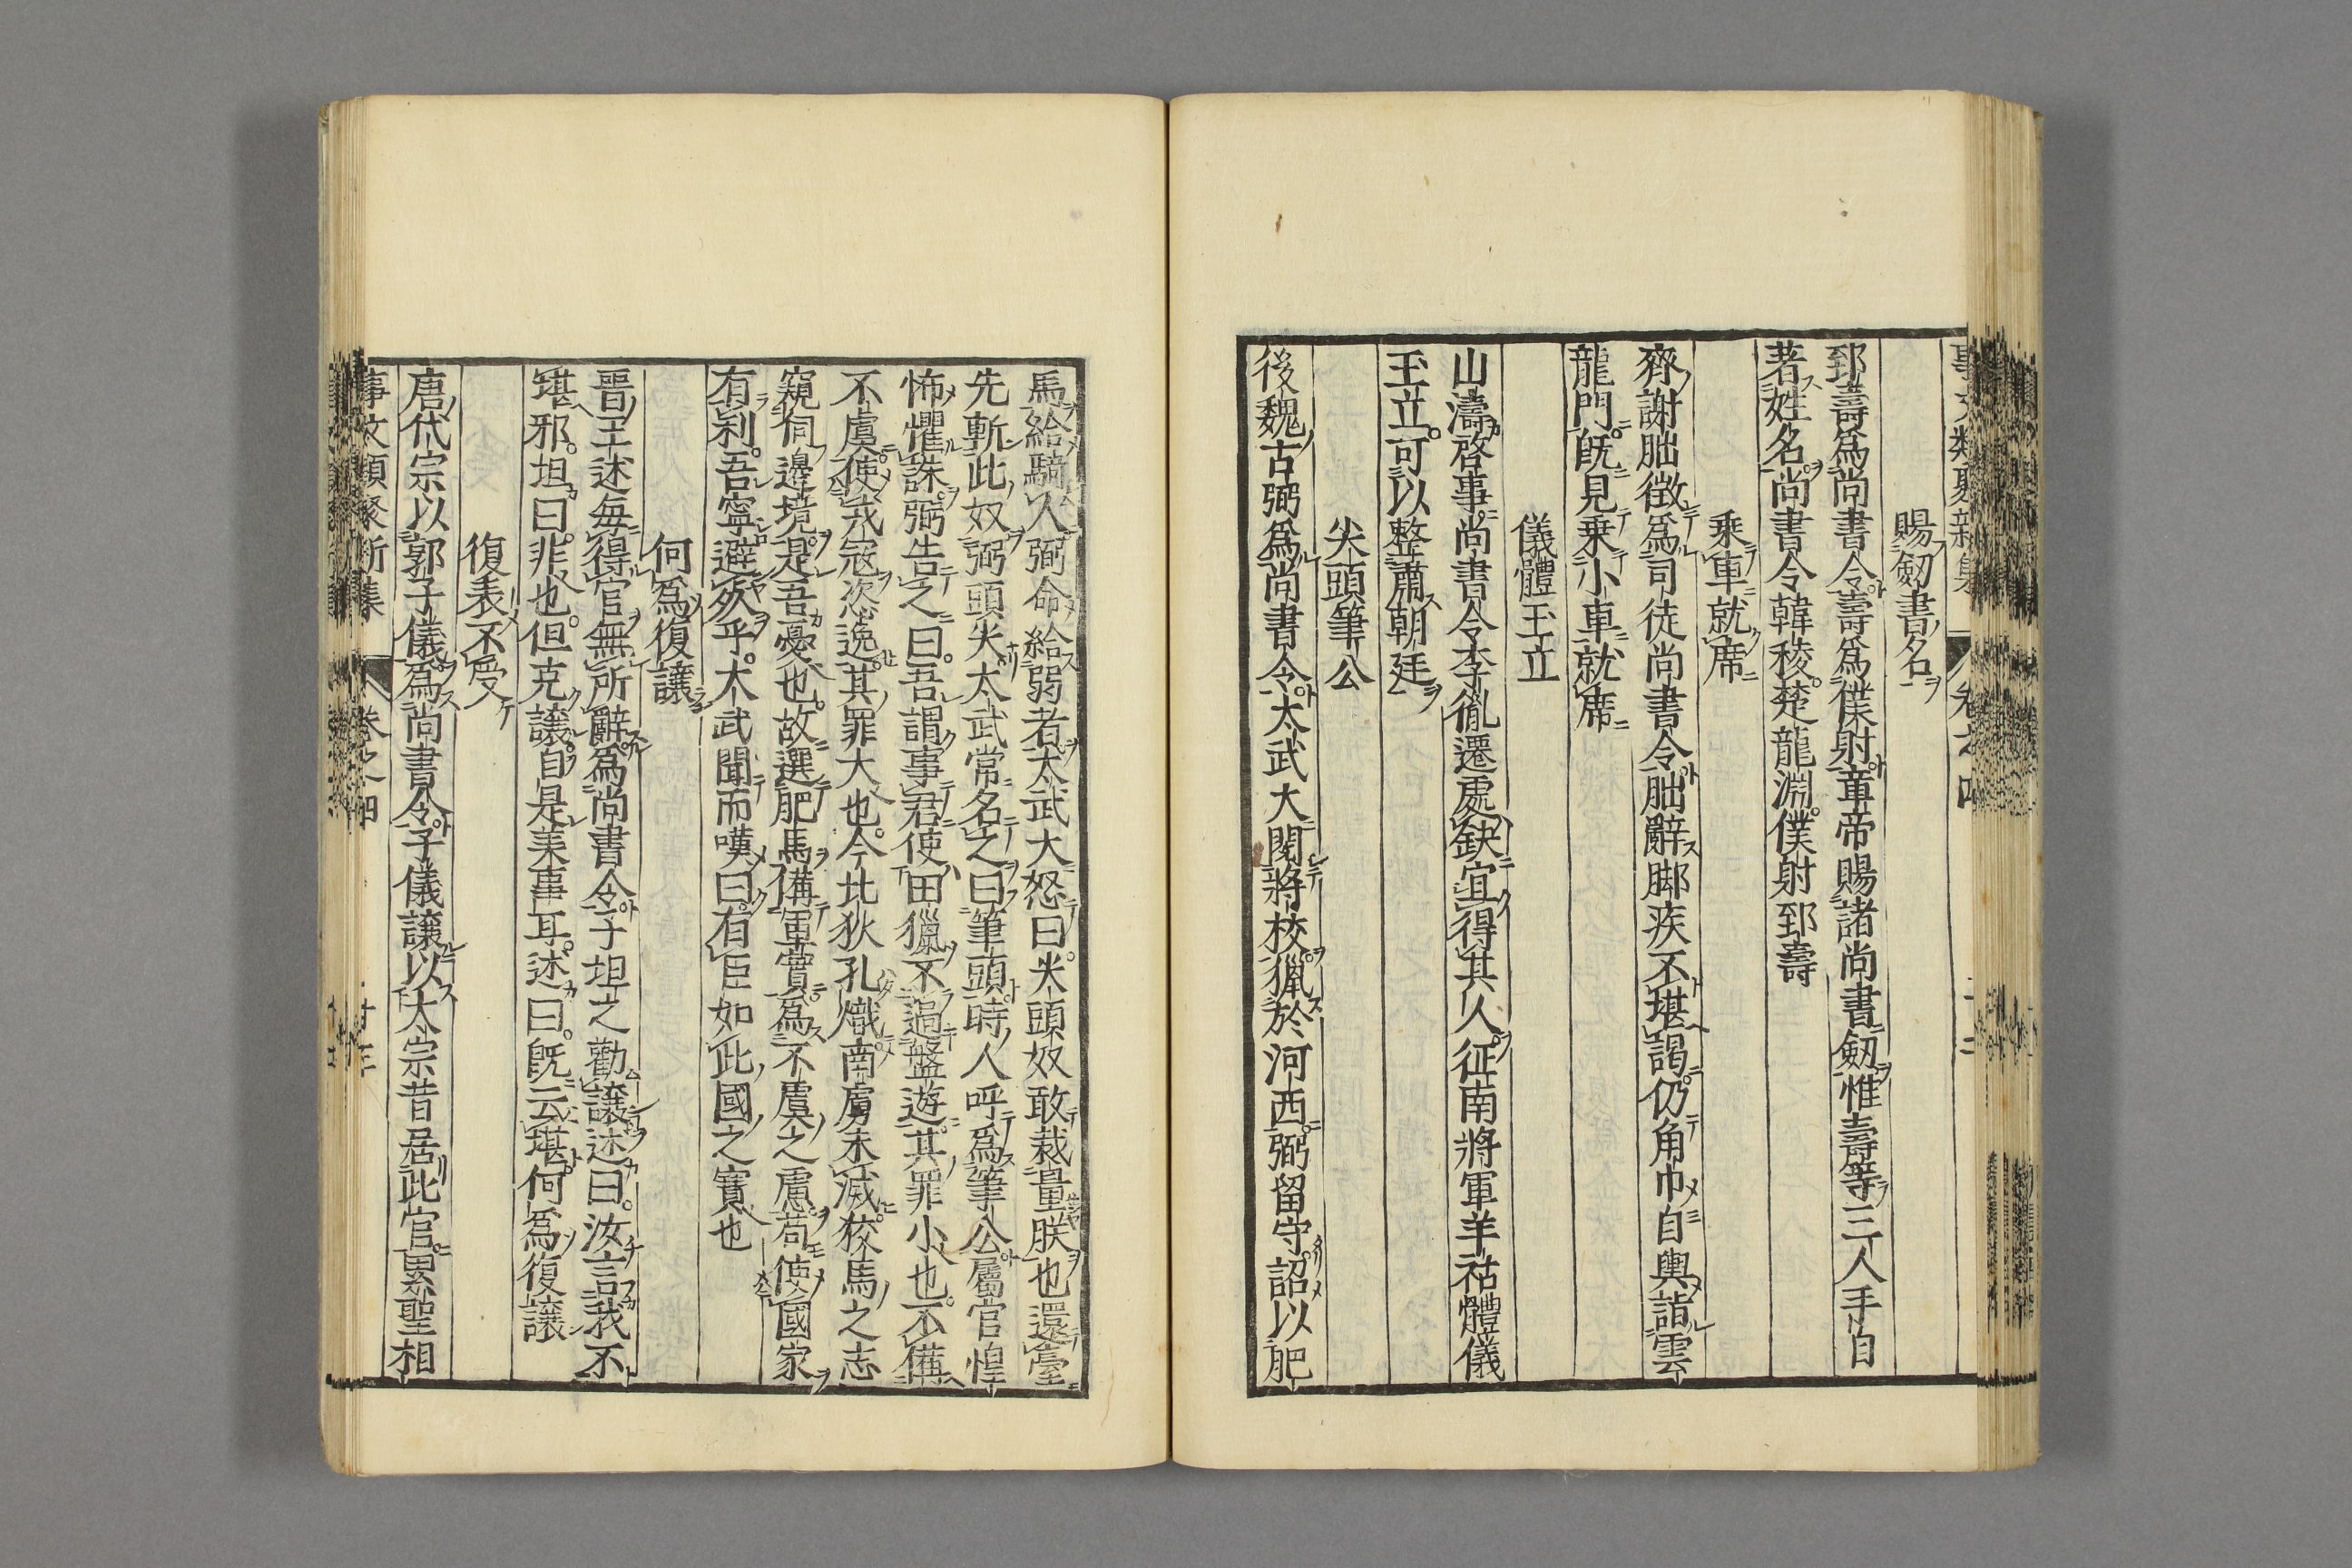 事文類聚新集 卷之四
賜劔書名
郅壽爲尚書令壽爲僕射章帝賜諸尚書劔惟壽等三人手自
著姓名尚書令韓稜楚龍淵僕射郅壽
乘車就席
齊謝朏徴爲司徒尚書令朏辭脚疾不堪謁仍角巾自輿詣雲
龍門旣見乗小車就席
儀體玉立
山濤啓事尚書令李胤遷處缺宜得其人征南將軍羊祜體儀
玉立可以整肅朝廷
尖頭筆公
後魏古弼爲尚書令太武大閲將校獵於河西弼留守詔以肥
馬給騎人弼命給弱者太武大怒曰尖頭奴敢裁量朕也還臺
先斬此奴弼頭尖太武常名之曰筆頭時人呼爲筆公屬官惶
怖懼誅弼告之曰吾謂事君使田獵不過盤遊其罪小也不備
不虞使戎冦恣逸其罪大也今北狄孔熾南虜未滅狡馬之志
窺伺邊境是吾憂也故選肥馬備軍實爲不虞之慮苟使國家
有利吾寧避死乎太武聞而嘆曰有臣如此國之寳也
何爲復讓
晉王述毎得官無所辭爲尚書令子坦之勸讓述曰汝言我不
堪邪坦曰非也但克讓自是美事耳述曰旣云堪何爲復讓
復表不受
唐代宗以郭子儀爲尚書令子儀讓以太宗昔居此官累聖相
事文類聚新集 卷之四